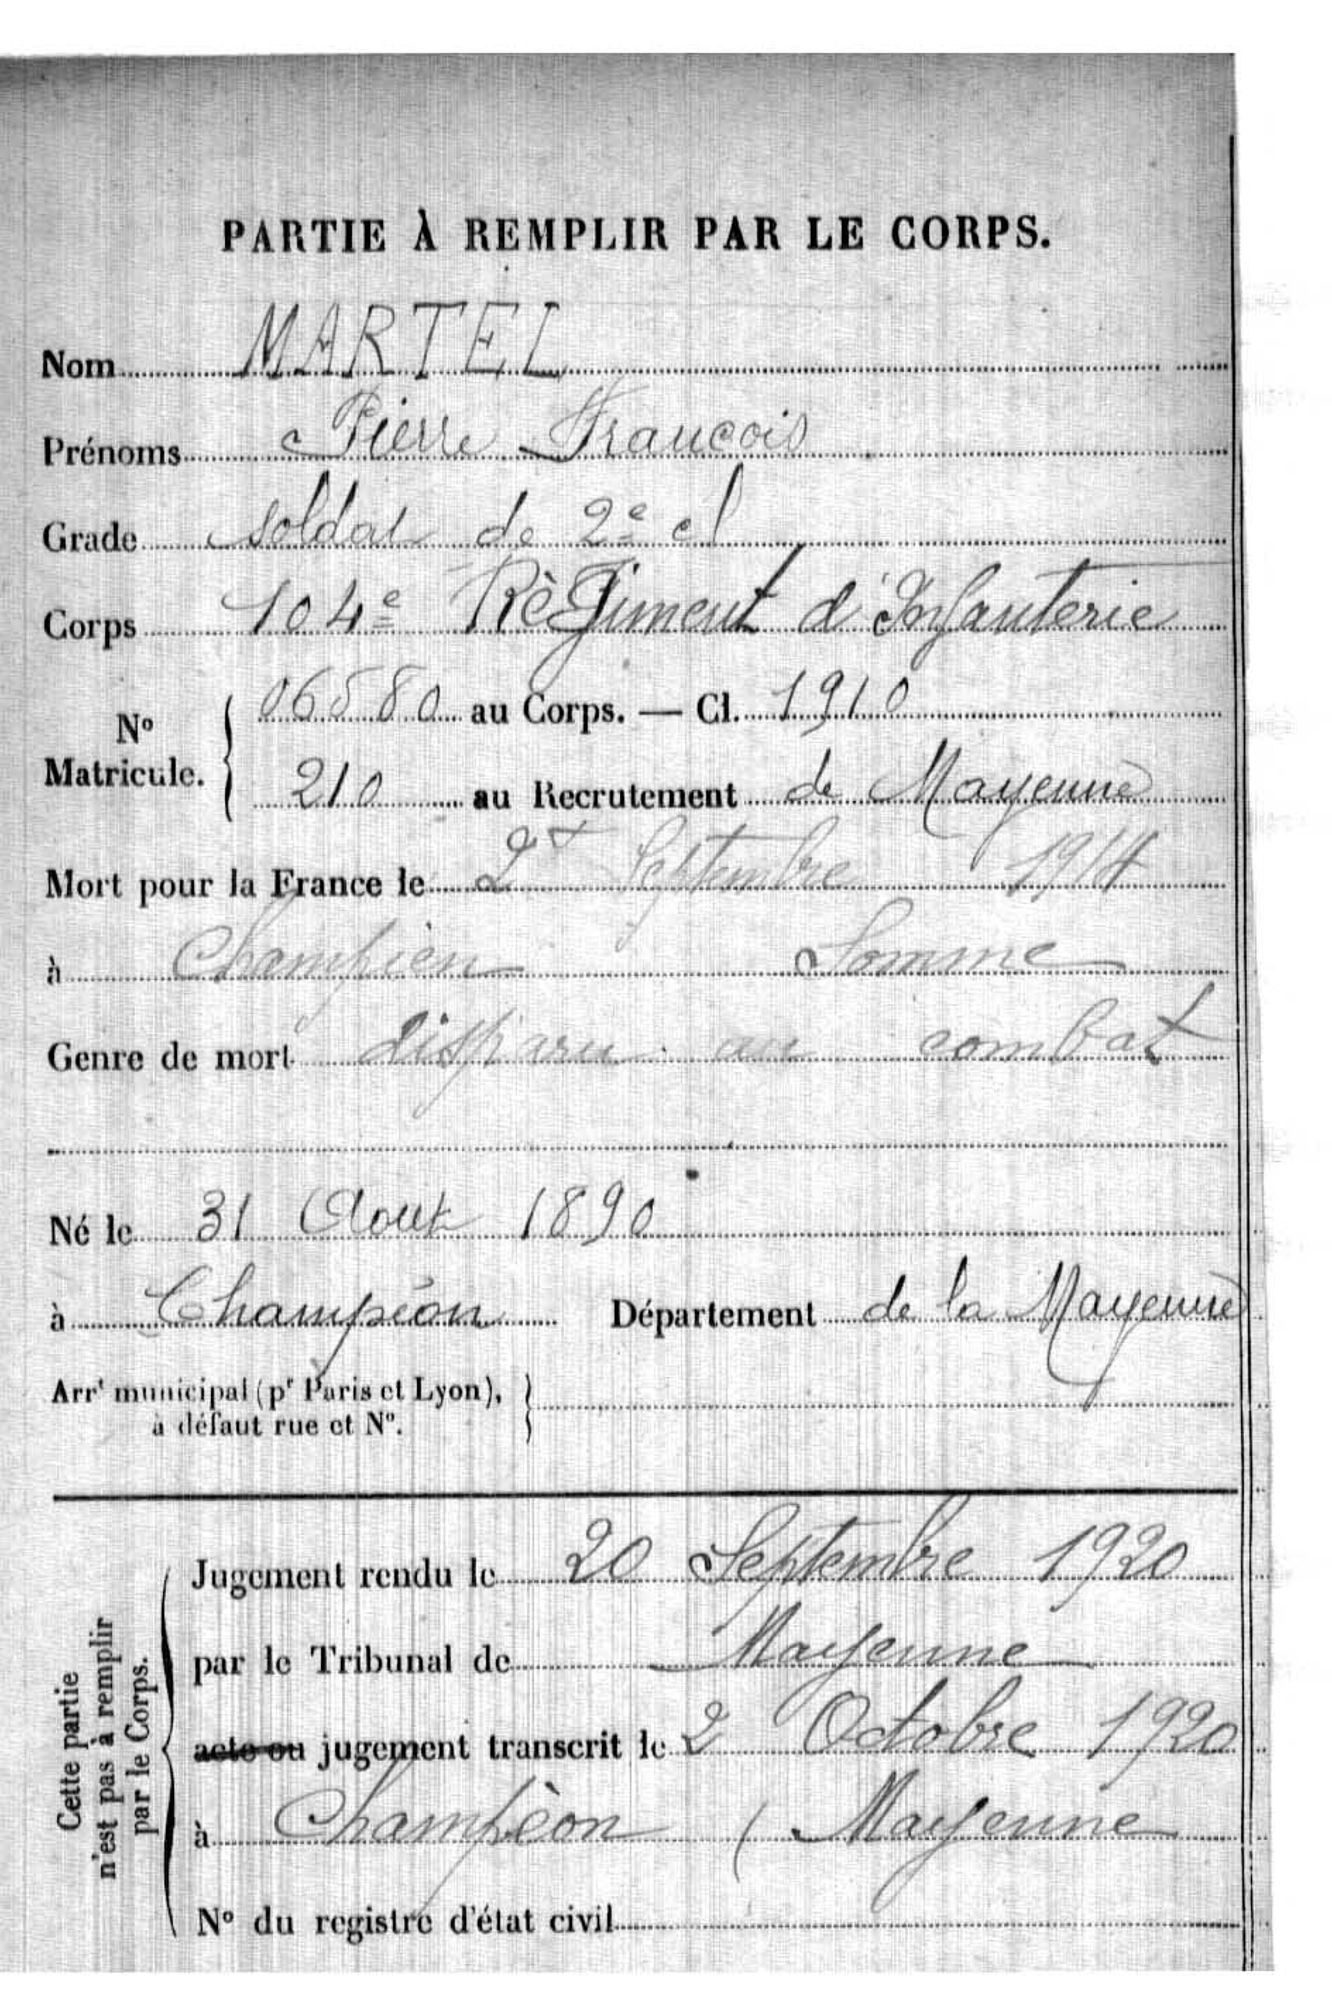 PARTIE À REMPLIR PAR LE CORPS.
Nom MARTEL
Prénoms Pierre François
Grade soldat de 2e cl
Corps 104e Règiment d'Infanterie
No Matricule. 06580 au Corps. — Cl. 1910
210 au Recrutement de Mayenne
Mort pour la France le 2 Septembre 1914
à Champien Somme
Genre de mort disparu au combat
Né le 31 Aout 1890
à Champéon Département de la Mayenne
Arrt municipal (pr Paris et Lyon),
à défaut rue et No.
Cette partie
n'est pas à remplir
par le Corps.
Jugement rendu le 20 Septembre 1920
par le Tribunal de Mayenne
acte ou jugement transcrit le 2 Octobre 1920
à Champèon ( Mayenne
No du registre d'état civil